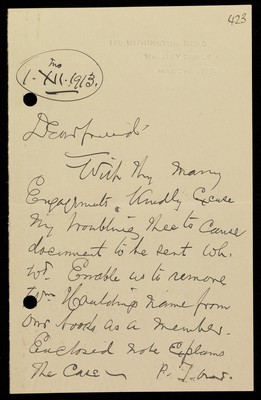 423
1-XII-1913.
Dear friend
With thy many
Engagements Kindly Excuse
my troubling thee to Cause
document to be sent wh.
wd. Enable us to remove
Wm. Hauldings name from
our books as a member.
Enclosed note Explains
the Case